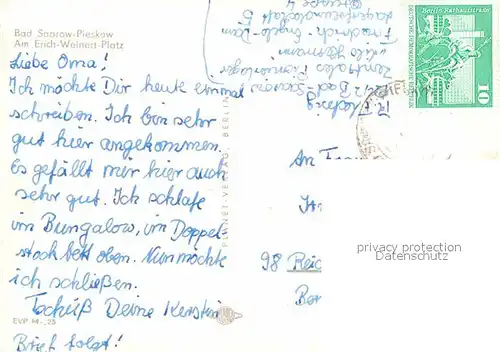 Bad Saarow-Pieskow
Am Erich-Weinert-Platz
Liebe Oma!
Ich möchte Dir heute einmal
schreiben. Ich bin sehr
gut hier angekommen.
Es gefällt mir hier auch
sehr gut. Ich schlafe
im Bungalow, im Doppel-
stockbett oben. Nun möchte
ich schließen.
Tschüß Deine Kerstin
Brief folgt!
EVP M -,25
PLANET-VERLAG BERLIN
Bad Saarow
Zentrales Pionierlager
Friedrich Engels
Berlin, Rathausstraße
DEUTSCHE DEMOKRATISCHE REPUBLIK
10
An
98 Reic
privacy protection
Datenschutz